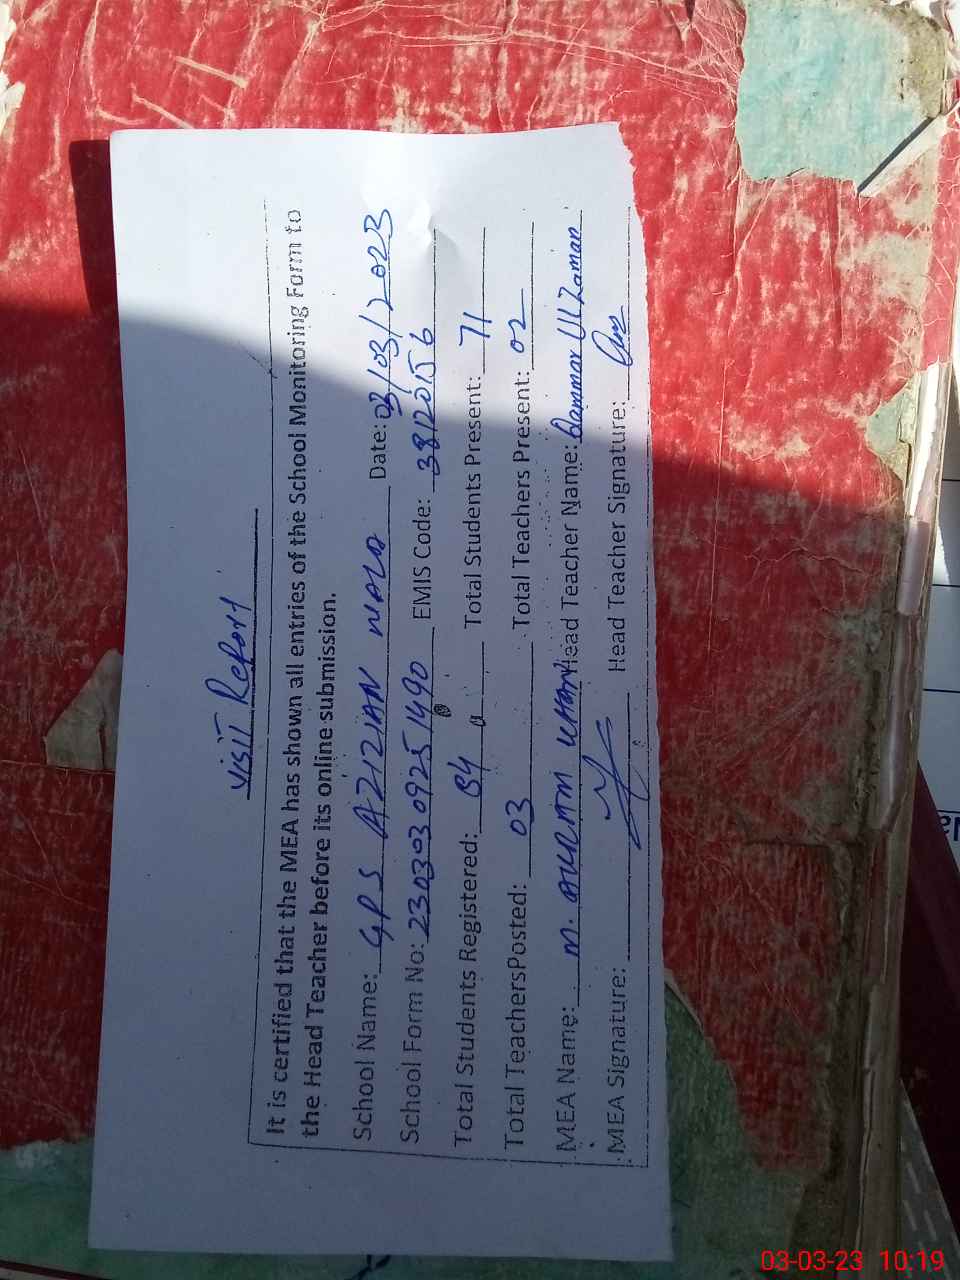 Visit Report
It is certified that the MEA has shown all entries of the School Monitoring Form to
the Head Teacher before its online submission.
School Name: GPS AZIZIAN WALA Date: 03/03/2023
School Form No: 23030309251490 EMIS Code: 38120156
Total Students Registered: 84 Total Students Present: 71
Total TeachersPosted: 03 Total Teachers Present: 02
MEA Name: M. Head Teacher Name: Ul Zaman
MEA Signature: Head Teacher Signature:
03-03-23 10:19